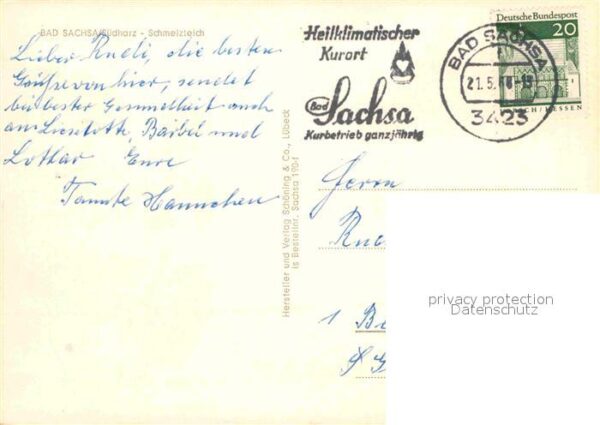 BAD SACHSA/Südharz - Schmelzteich
Lieber Rudi, die besten
Grüße von hier, sendet
bei bester Gesundheit auch
an Liselotte, Bärbel und
Lothar Eure
Tante Hannchen
Hersteller und Verlag Schöning & Co., Lübeck
Is Bestellnr. Sachsa 1904
Heilklimatischer
Kurort
Bad
Sachsa
Kurbetrieb ganzjährig
BAD SACHSA
21.5.
3423
Deutsche Bundespost
20
/HESSEN
Herrn
Ru
1 B
privacy protection
Datenschutz